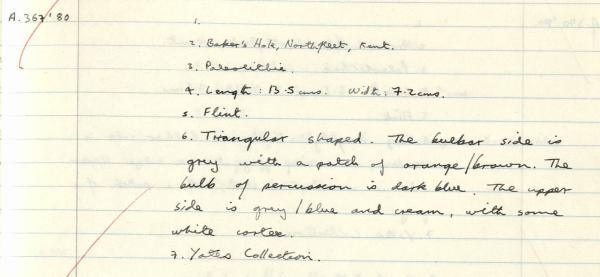 A.367'80
1.
2. Baker's Hole, Northfleet, Kent.
3. Paleolithic.
4. Length: 13.5cms. Width: 7.2cms.
5. Flint.
6. Triangular shaped. The bulbar side is
grey with a patch of orange/brown. The
bulb of percussion is dark blue. The upper
side is grey/blue and cream, with some
white cortex.
7. Yates Collection.